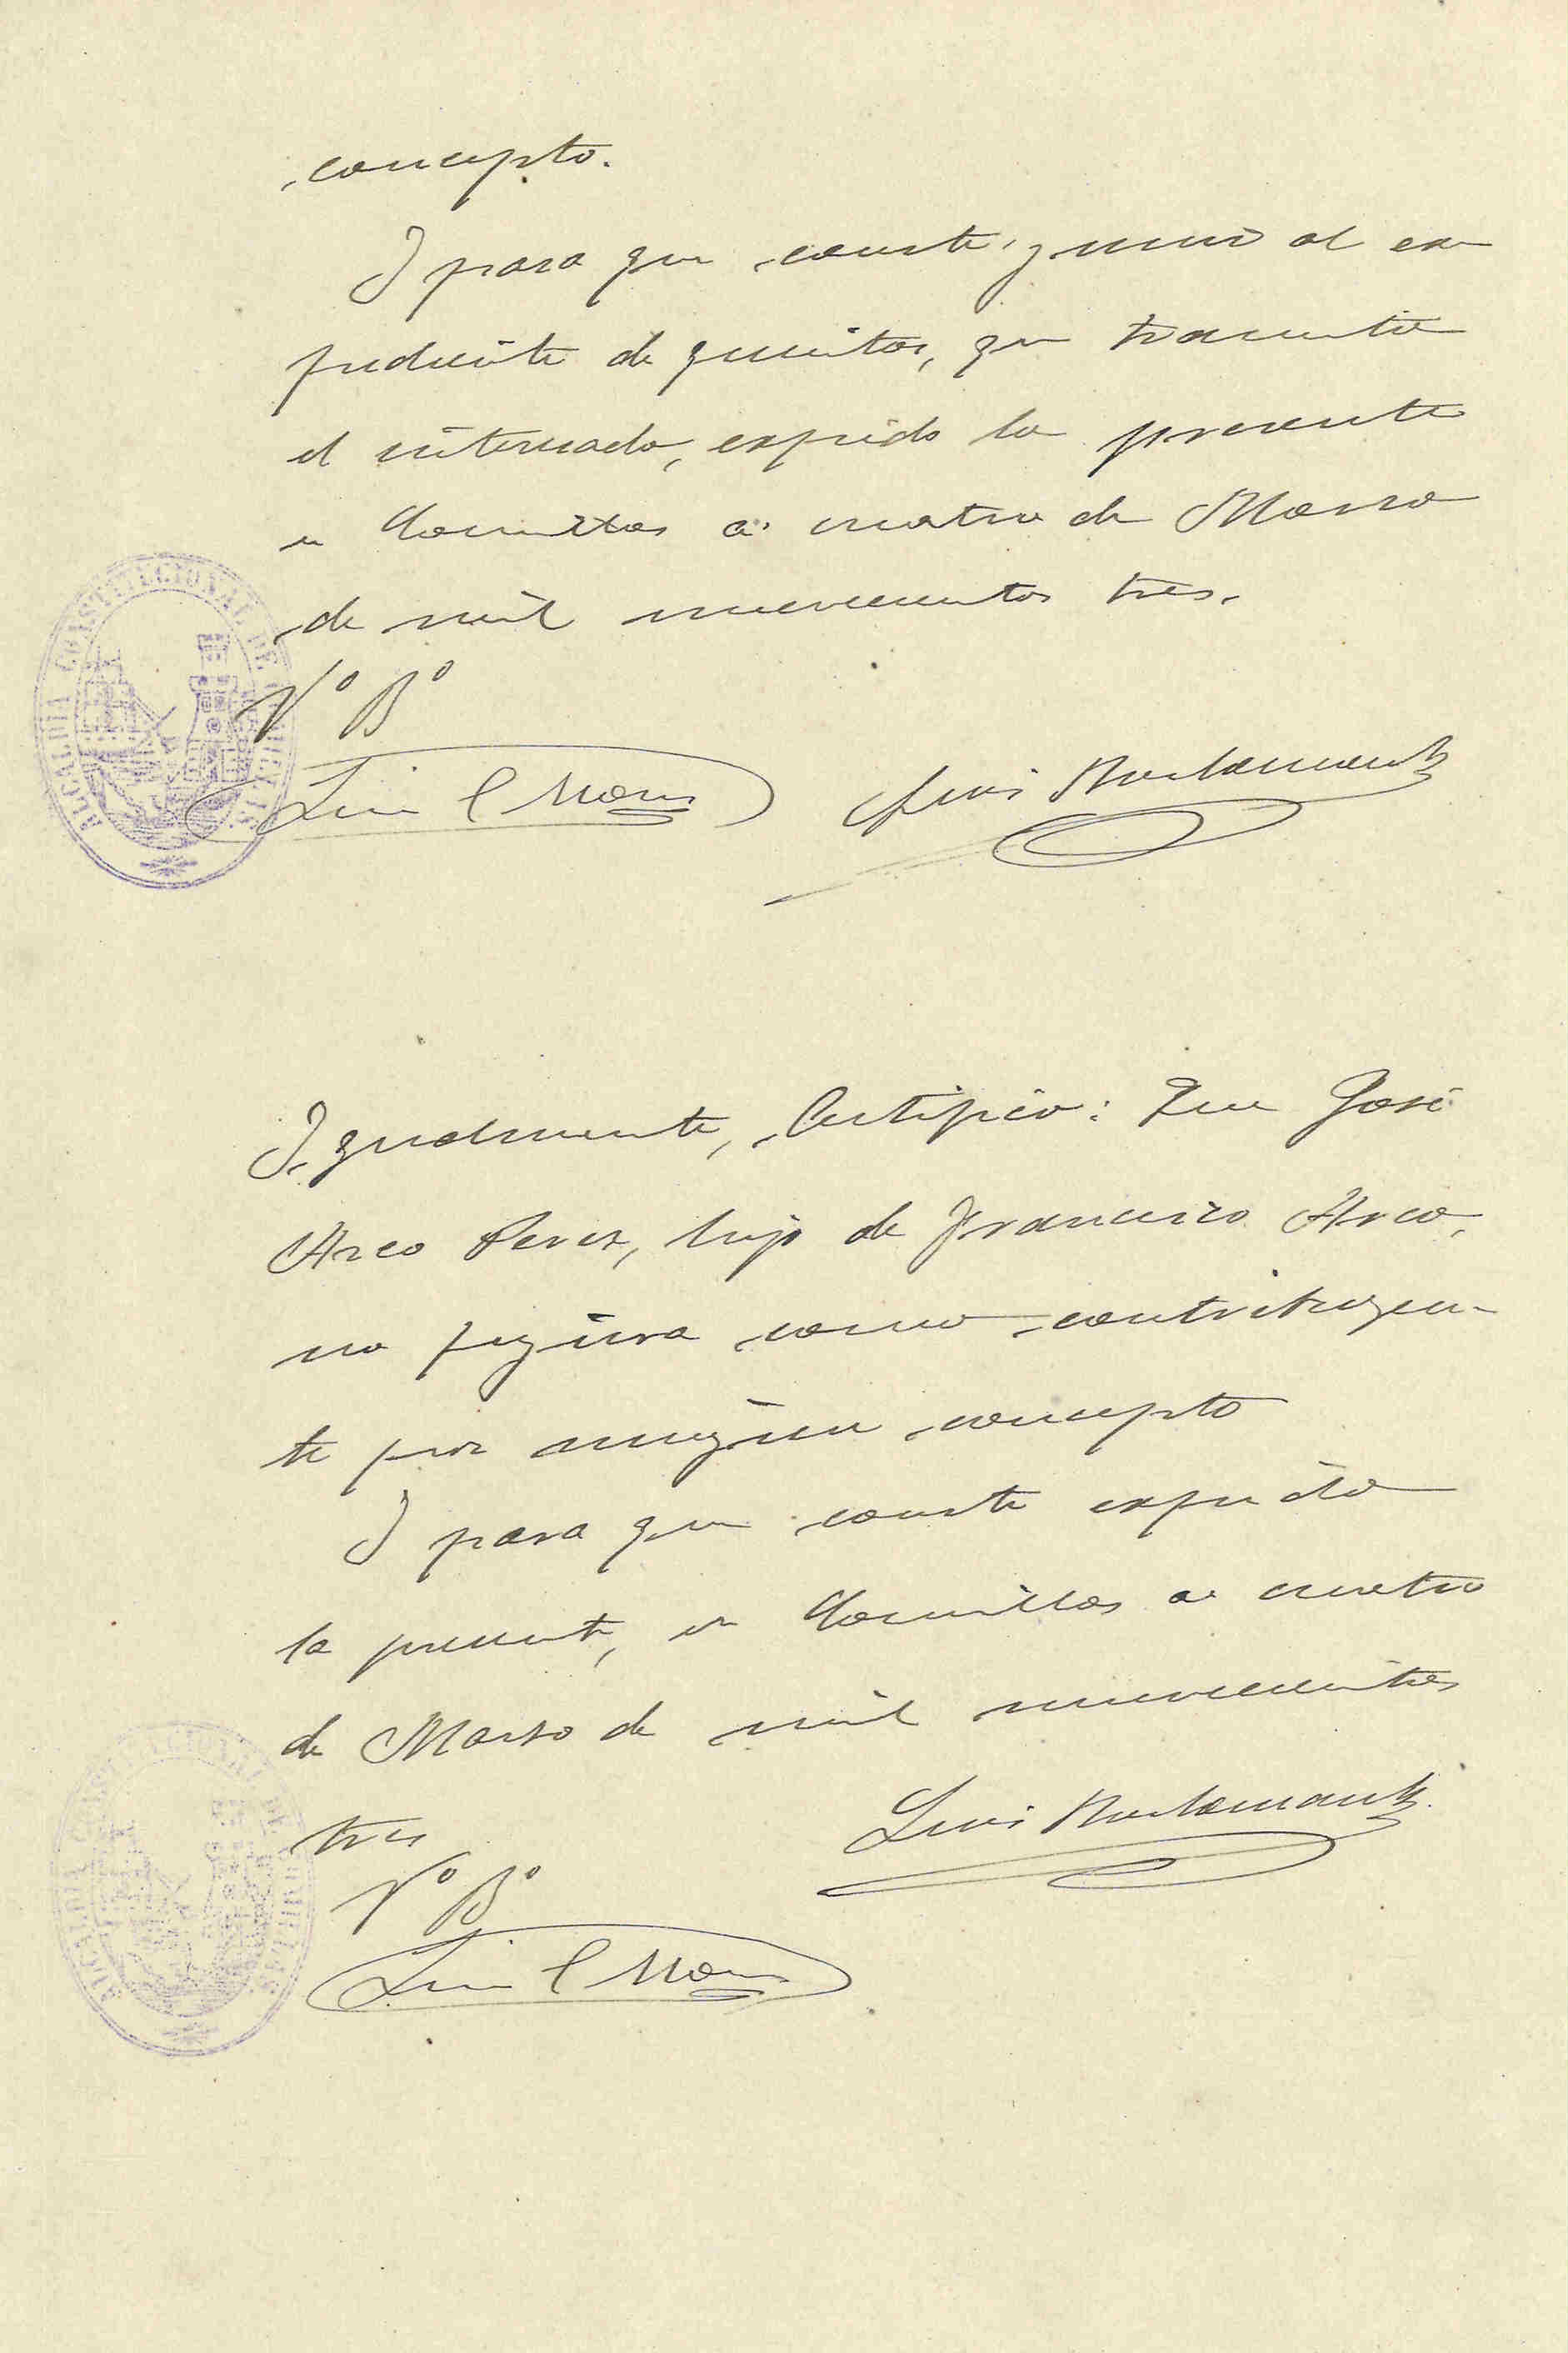 concepto.
Y para que conste, y unir al ex
pediente de quintas, que tramita
el interesado, expido la presente
en Comillas a cuatro de Marzo
de mil novecientos tres.
Vº Bº
Luis
ALCALDIA CONSTITUCIONAL DE COMILLAS
Igualmente, Certifico: Que José
Arco Perez, hijo de Francisco Arco,
no figura como contribuyen-
te por ningun concepto
Y para que conste expido
la presente, en Comillas a cuatro
de Marzo de mil novecientos
tres
Luis
Vº Bº
ALCALDIA CONSTITUCIONAL DE COMILLAS